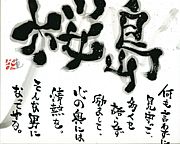 桜島
何も言わずに
見守って
多くを語らず
励まして
心の奥には
情熱を
そんな男に
なってやる。